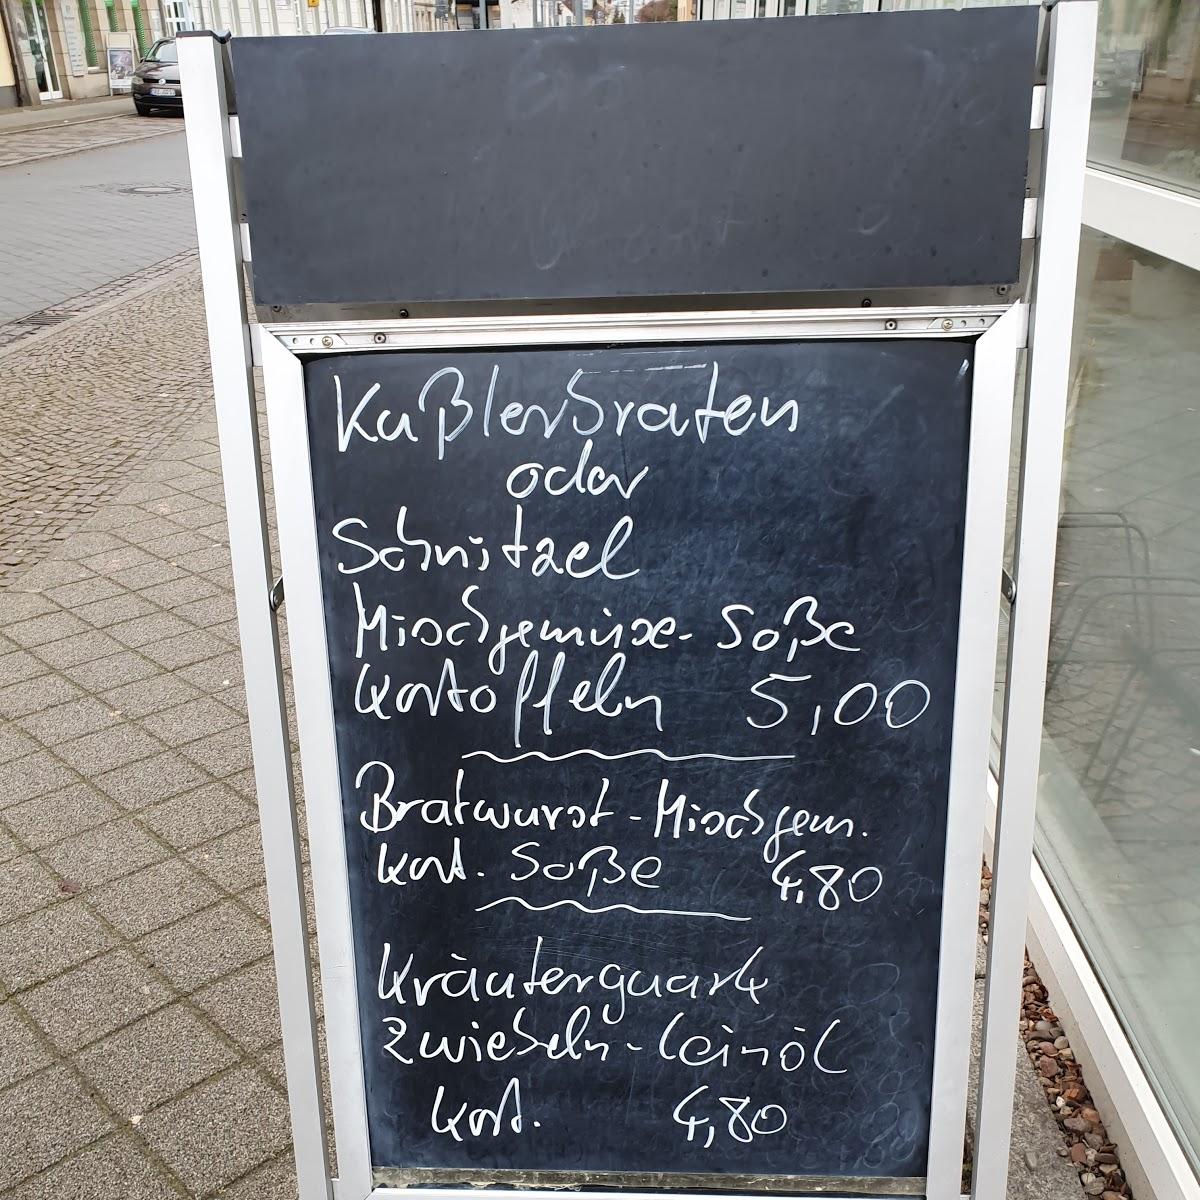 Kaßlerbraten
oder
Schnitzel
Mischgemüse - Soße
Kartoffeln 5,00
Bratwurst - Mischgem.
Kart. Soße 4,80
Kräuterquark
Zwiebeln - Leinöl
Kart. 4,80